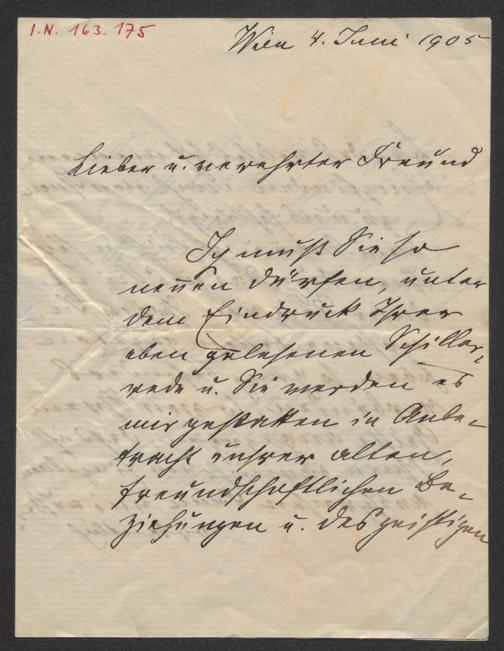 I.N. 163.175
Wien 4. Juni 1905
Lieber u. verehrter Freund
Ich muß Sie so
nennen dürfen, unter
dem Eindruck Ihrer
eben gelesenen Schiller-
rede u. Sie werden es
mir gestatten in Anbe-
tracht unsrer alten,
freundschaftlichen Be-
ziehungen u. des geistigen